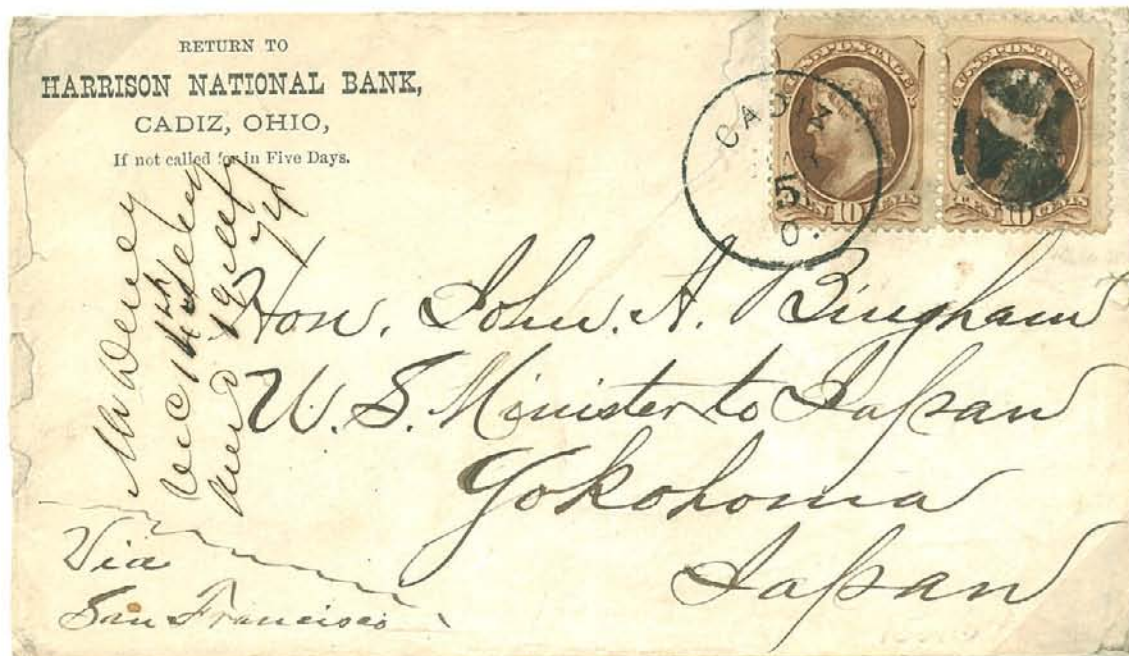 RETURN TO
HARRISON NATIONAL BANK,
CADIZ, OHIO,
If not called for in Five Days.
U.S. POSTAGE
TEN 10 CENTS
U.S. POSTAGE
TEN 10 CENTS
CADIZ
5
O.
Rec 14th
and 19
74
Hon. John. A. Bingham
U. S. Minister to Japan
Yokohoma
Japan
Via
San Francisco